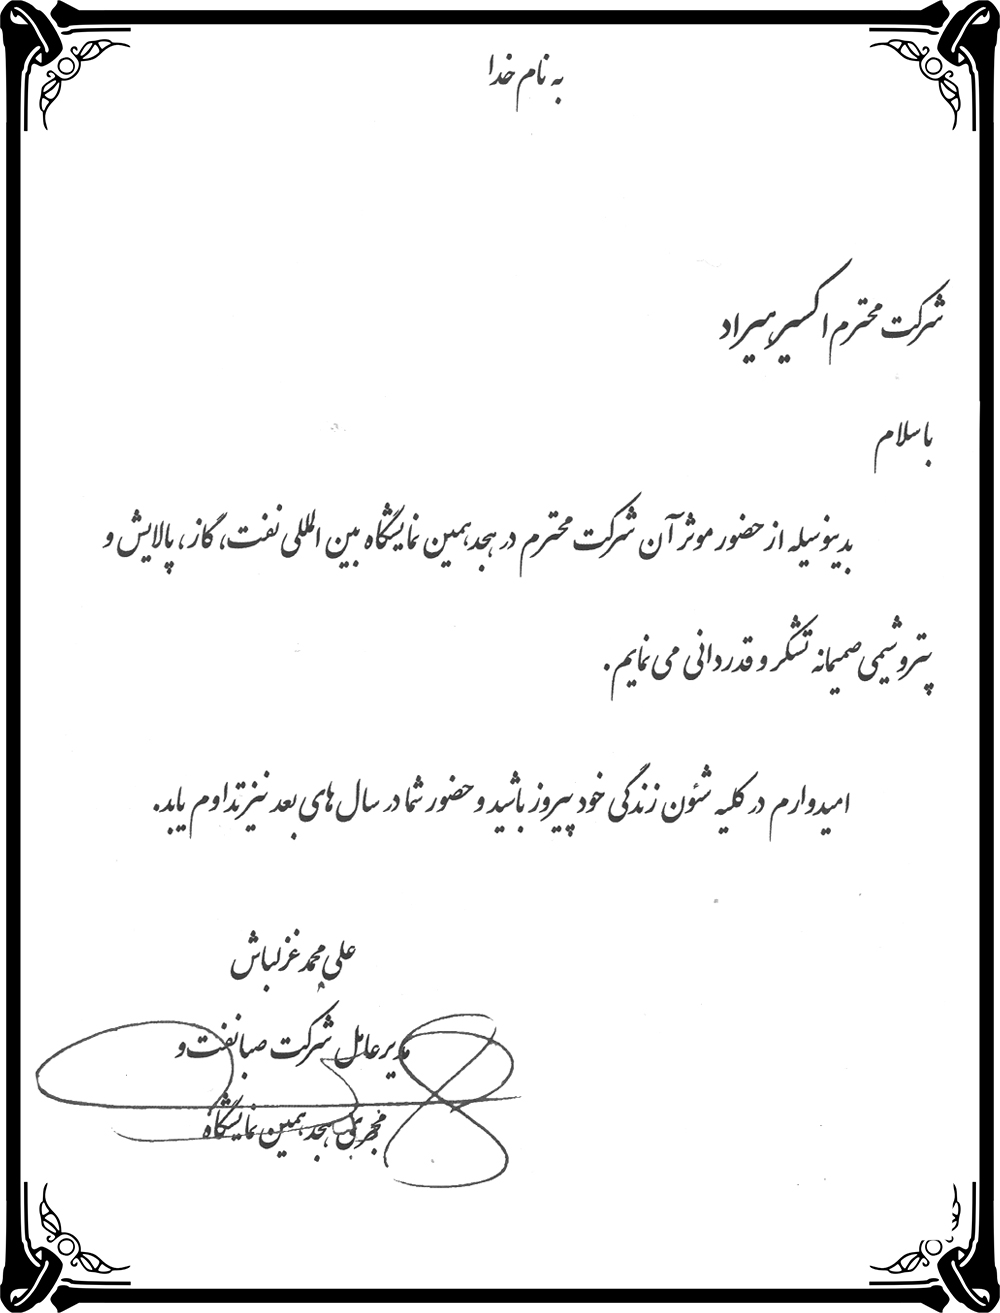 به نام خدا
شرکت محترم اکسیر هیراد
با سلام
بدینوسیله از حضور موثر آن شرکت محترم در هجدهمین نمایشگاه بین المللی نفت، گاز، پالایش و
پتروشیمی صمیمانه تشکر و قدردانی می نمایم.
امیدوارم در کلیه شئون زندگی خود پیروز باشید و حضور شما در سال های بعد نیز تداوم یابد.
علی محمد غزلباش
مدیر عامل شرکت صبا نفت و
مجری هجدهمین نمایشگاه